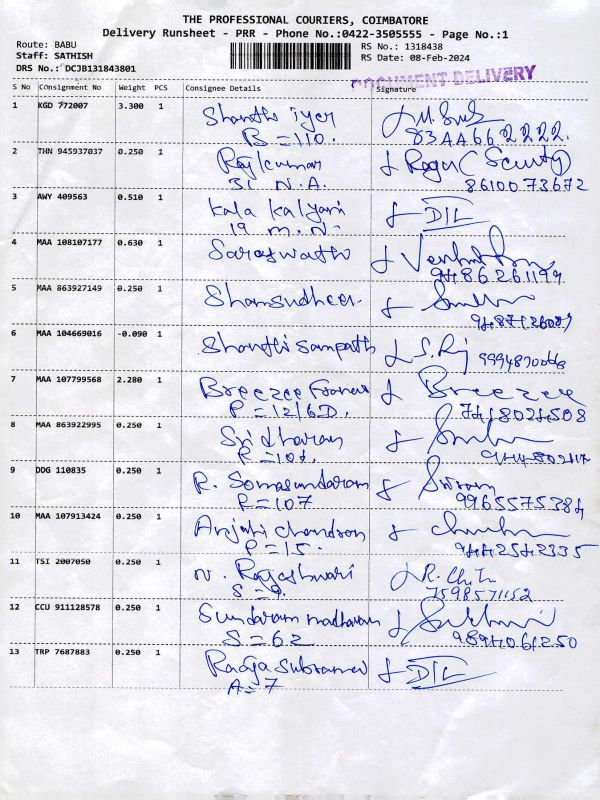 THE PROFESSIONAL COURIERS, COIMBATORE
Delivery Runsheet - PRR - Phone No.:0422-3505555 - Page No.:1
Route: BABU
Staff: SATHISH
DRS No.: DCJB131843801
RS No.: 1318438
RS Date: 08-Feb-2024
DOCUMENT DELIVERY
S No Consignment No Weight PCS Consignee Details Signature
1 KGD 772007 3.300 1 Shanthi iyer
B=110.
2 THN 945937037 0.250 1 Rajkumar
N.A. 8610073672
3 AWY 409563 0.510 1 Kala Kalyani DIL
19 M.N.
4 MAA 108107177 0.630 1 Saraswathi
5 MAA 863927149 0.250 1 Shamsudheer
6 MAA 104669016 -0.090 1 Shanthi Sampath
7 MAA 107799568 2.280 1 Breezee Breezee
P=12/6D. 7418024508
8 MAA 863922995 0.250 1 Sridharan
R=101.
9 DDG 110835 0.250 1 R. Somasundaram Sriram
R=107 9965575384
10 MAA 107913424 0.250 1 Anjali Chandran
P=15. 9442542335
11 TSI 2007050 0.250 1 N. Rajeshwari
S=9. 7598571152
12 CCU 911128578 0.250 1 Sundaram madhavan
S=62 9894061250
13 TRP 7687883 0.250 1 Raaja DIL
A=7